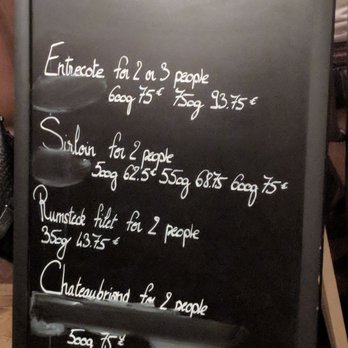 Entrecote for 2 or 3 people
600g 75€ 750g 93.75€
Sirloin for 2 people
500g 62.5€ 550g 68.75 600g 75€
Rumsteck filet for 2 people
350g 43.75€
Chateaubriand for 2 people
500g 75€